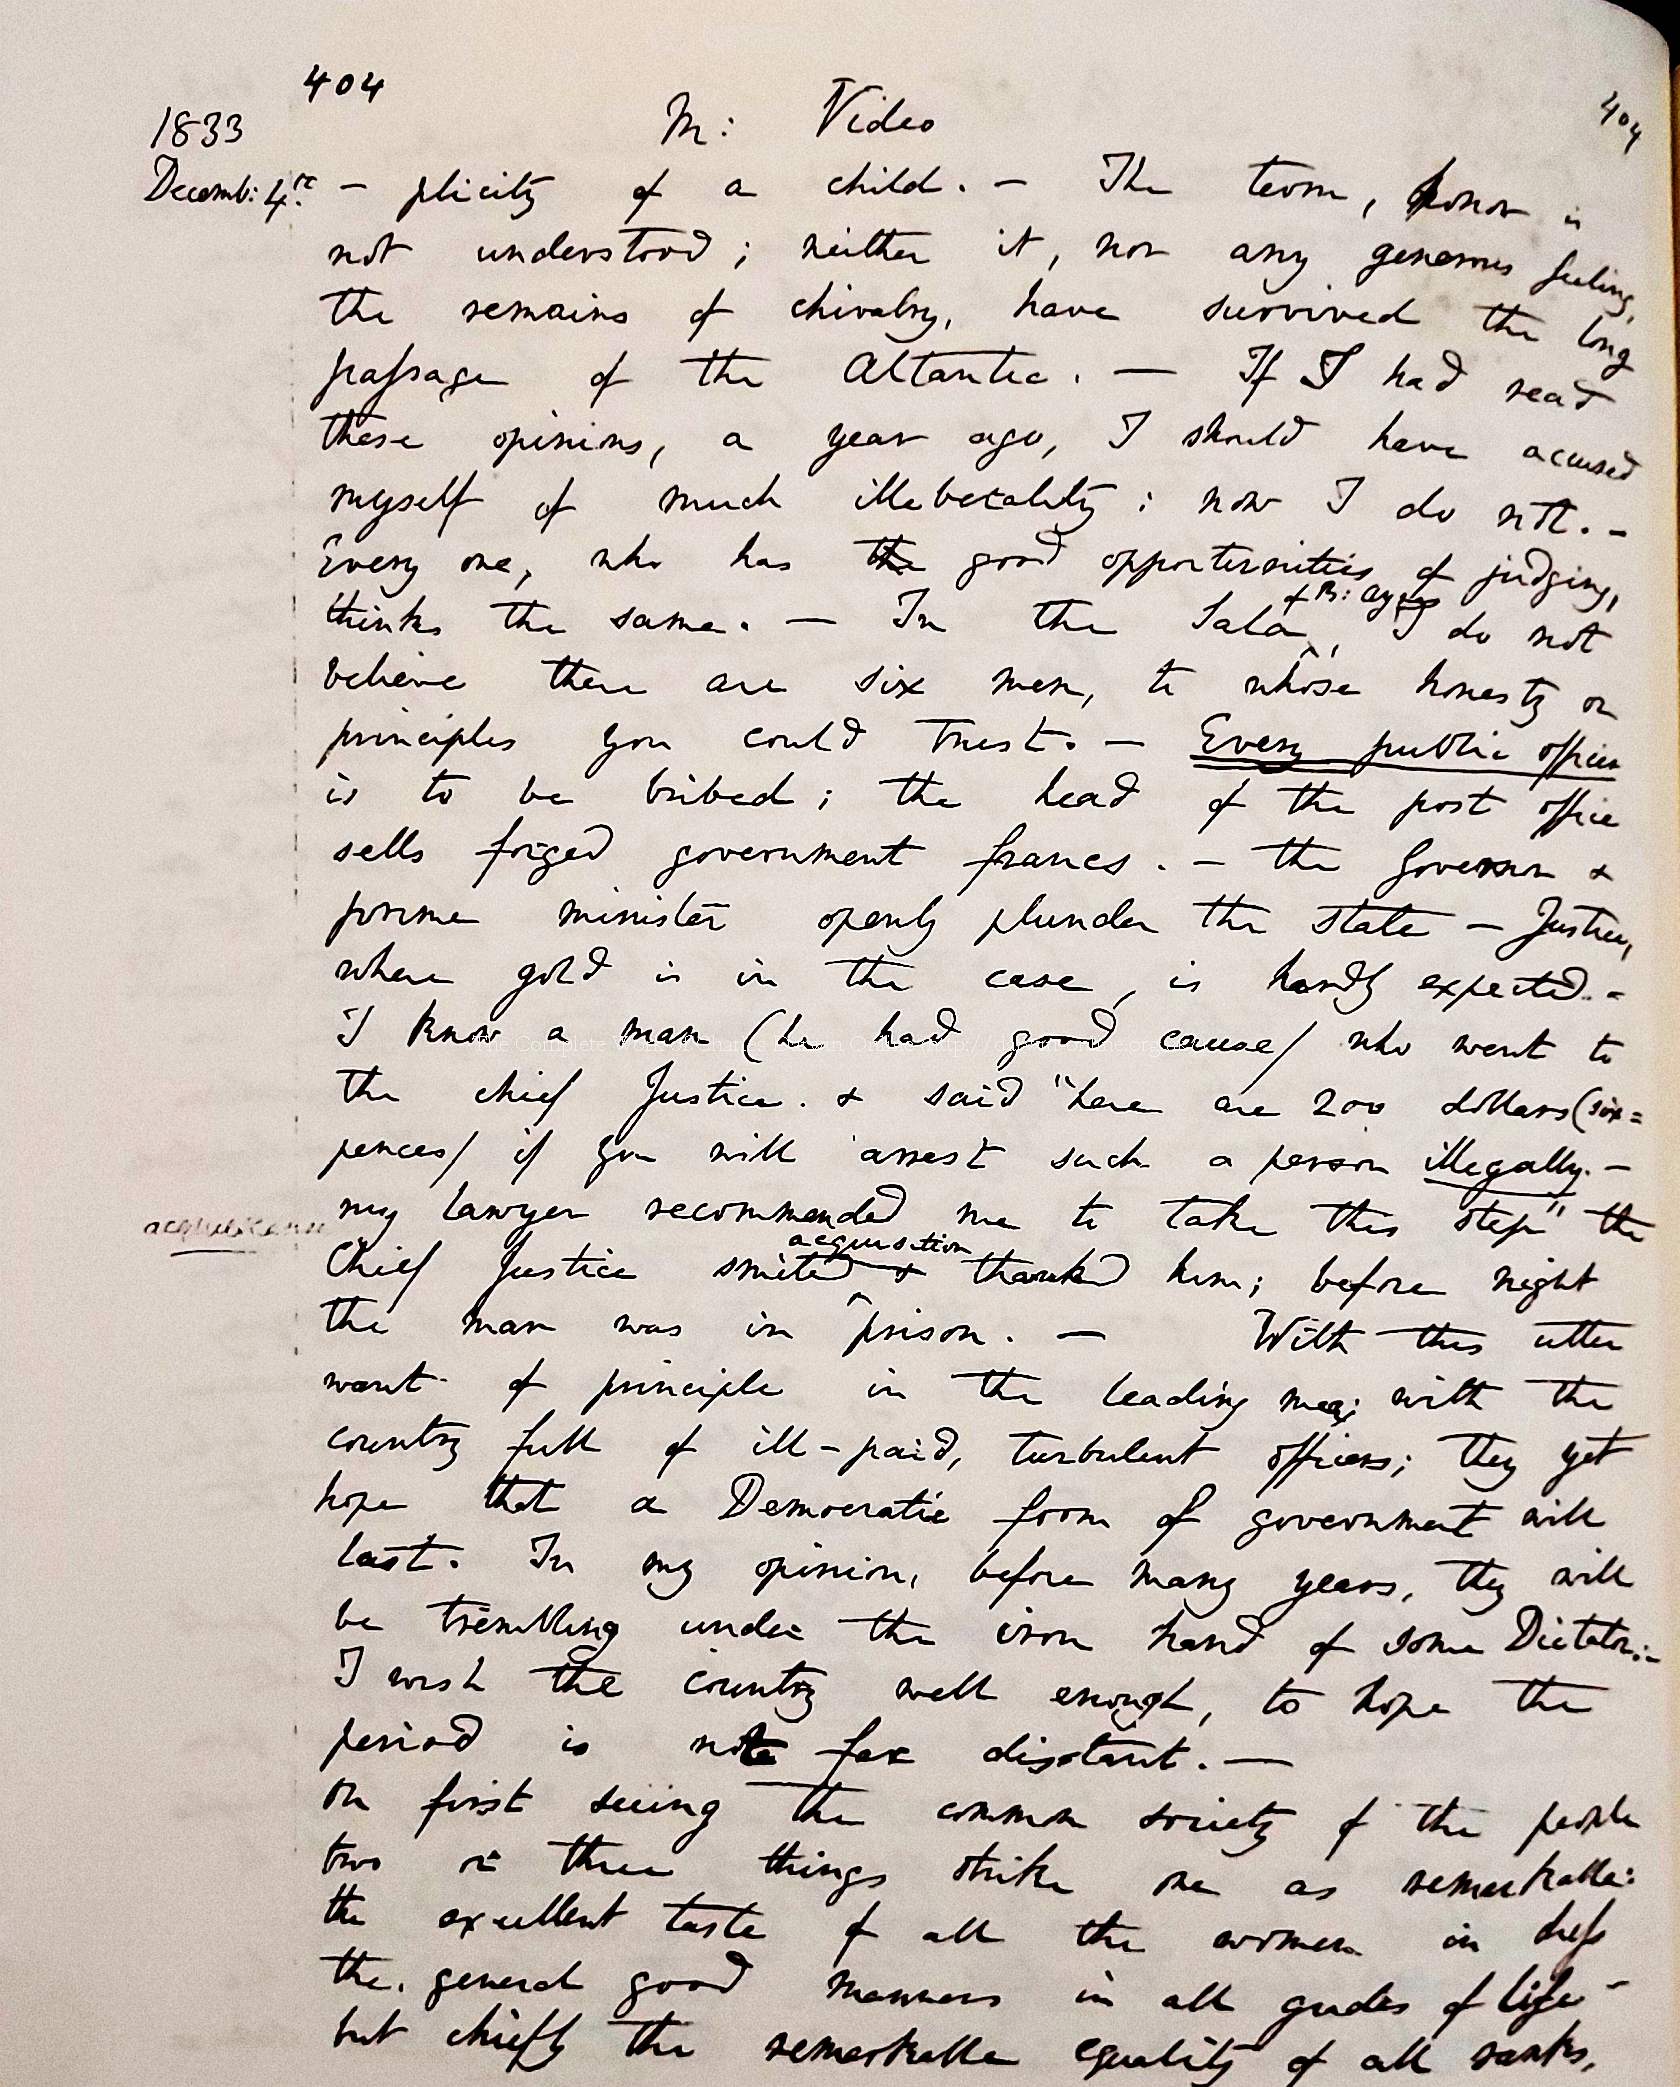 404
404
1833
M: Video
Decemb: 4th
– plicity of a child. – The term, honor is
not understood; neither it, nor any generous feeling,
the remains of chivalry, have survived the long
passage of the Altantic. — If I had read
these opinions, a year ago, I should have accused
myself of much illeberality: now I do not. –
Every one, who has the good opportunities of judging,
of B: Ayres
thinks the same. — In the Sala, I do not
believe there are six men, to whose honesty or
principles you could trust. — Every public officer
is to be bribed; the head of the post office
sells forged government francs. – the Governor &
prime minister openly plunder the state – Justice,
where gold is in the case, is hardly expected. –
I know a man (he had good cause) who went to
the chief Justice. & said "here are 200 dollars (six=
pences) if you will arrest such a person illegally. –
my lawyer recommended me to take this step" the
acquiscence
acquisition
Chief Justice smiled & thanked him; before night
the man was in prison. — With this utter
want of principle in the leading men; with the
country full of ill-paid, turbulent officers; they yet
hope that a Democratic form of government will
last. In my opinion, before many years, they will
be trembling under the iron hand of some Dictator. –
I wish the country well enough, to hope the
period is not far disstant. —
On first seeing the common society of the people
two or three things strike one as remarkable:
the excellent taste of all the women in dress
the general good manners in all grades of life –
but chiefly the remarkable equality of all ranks,